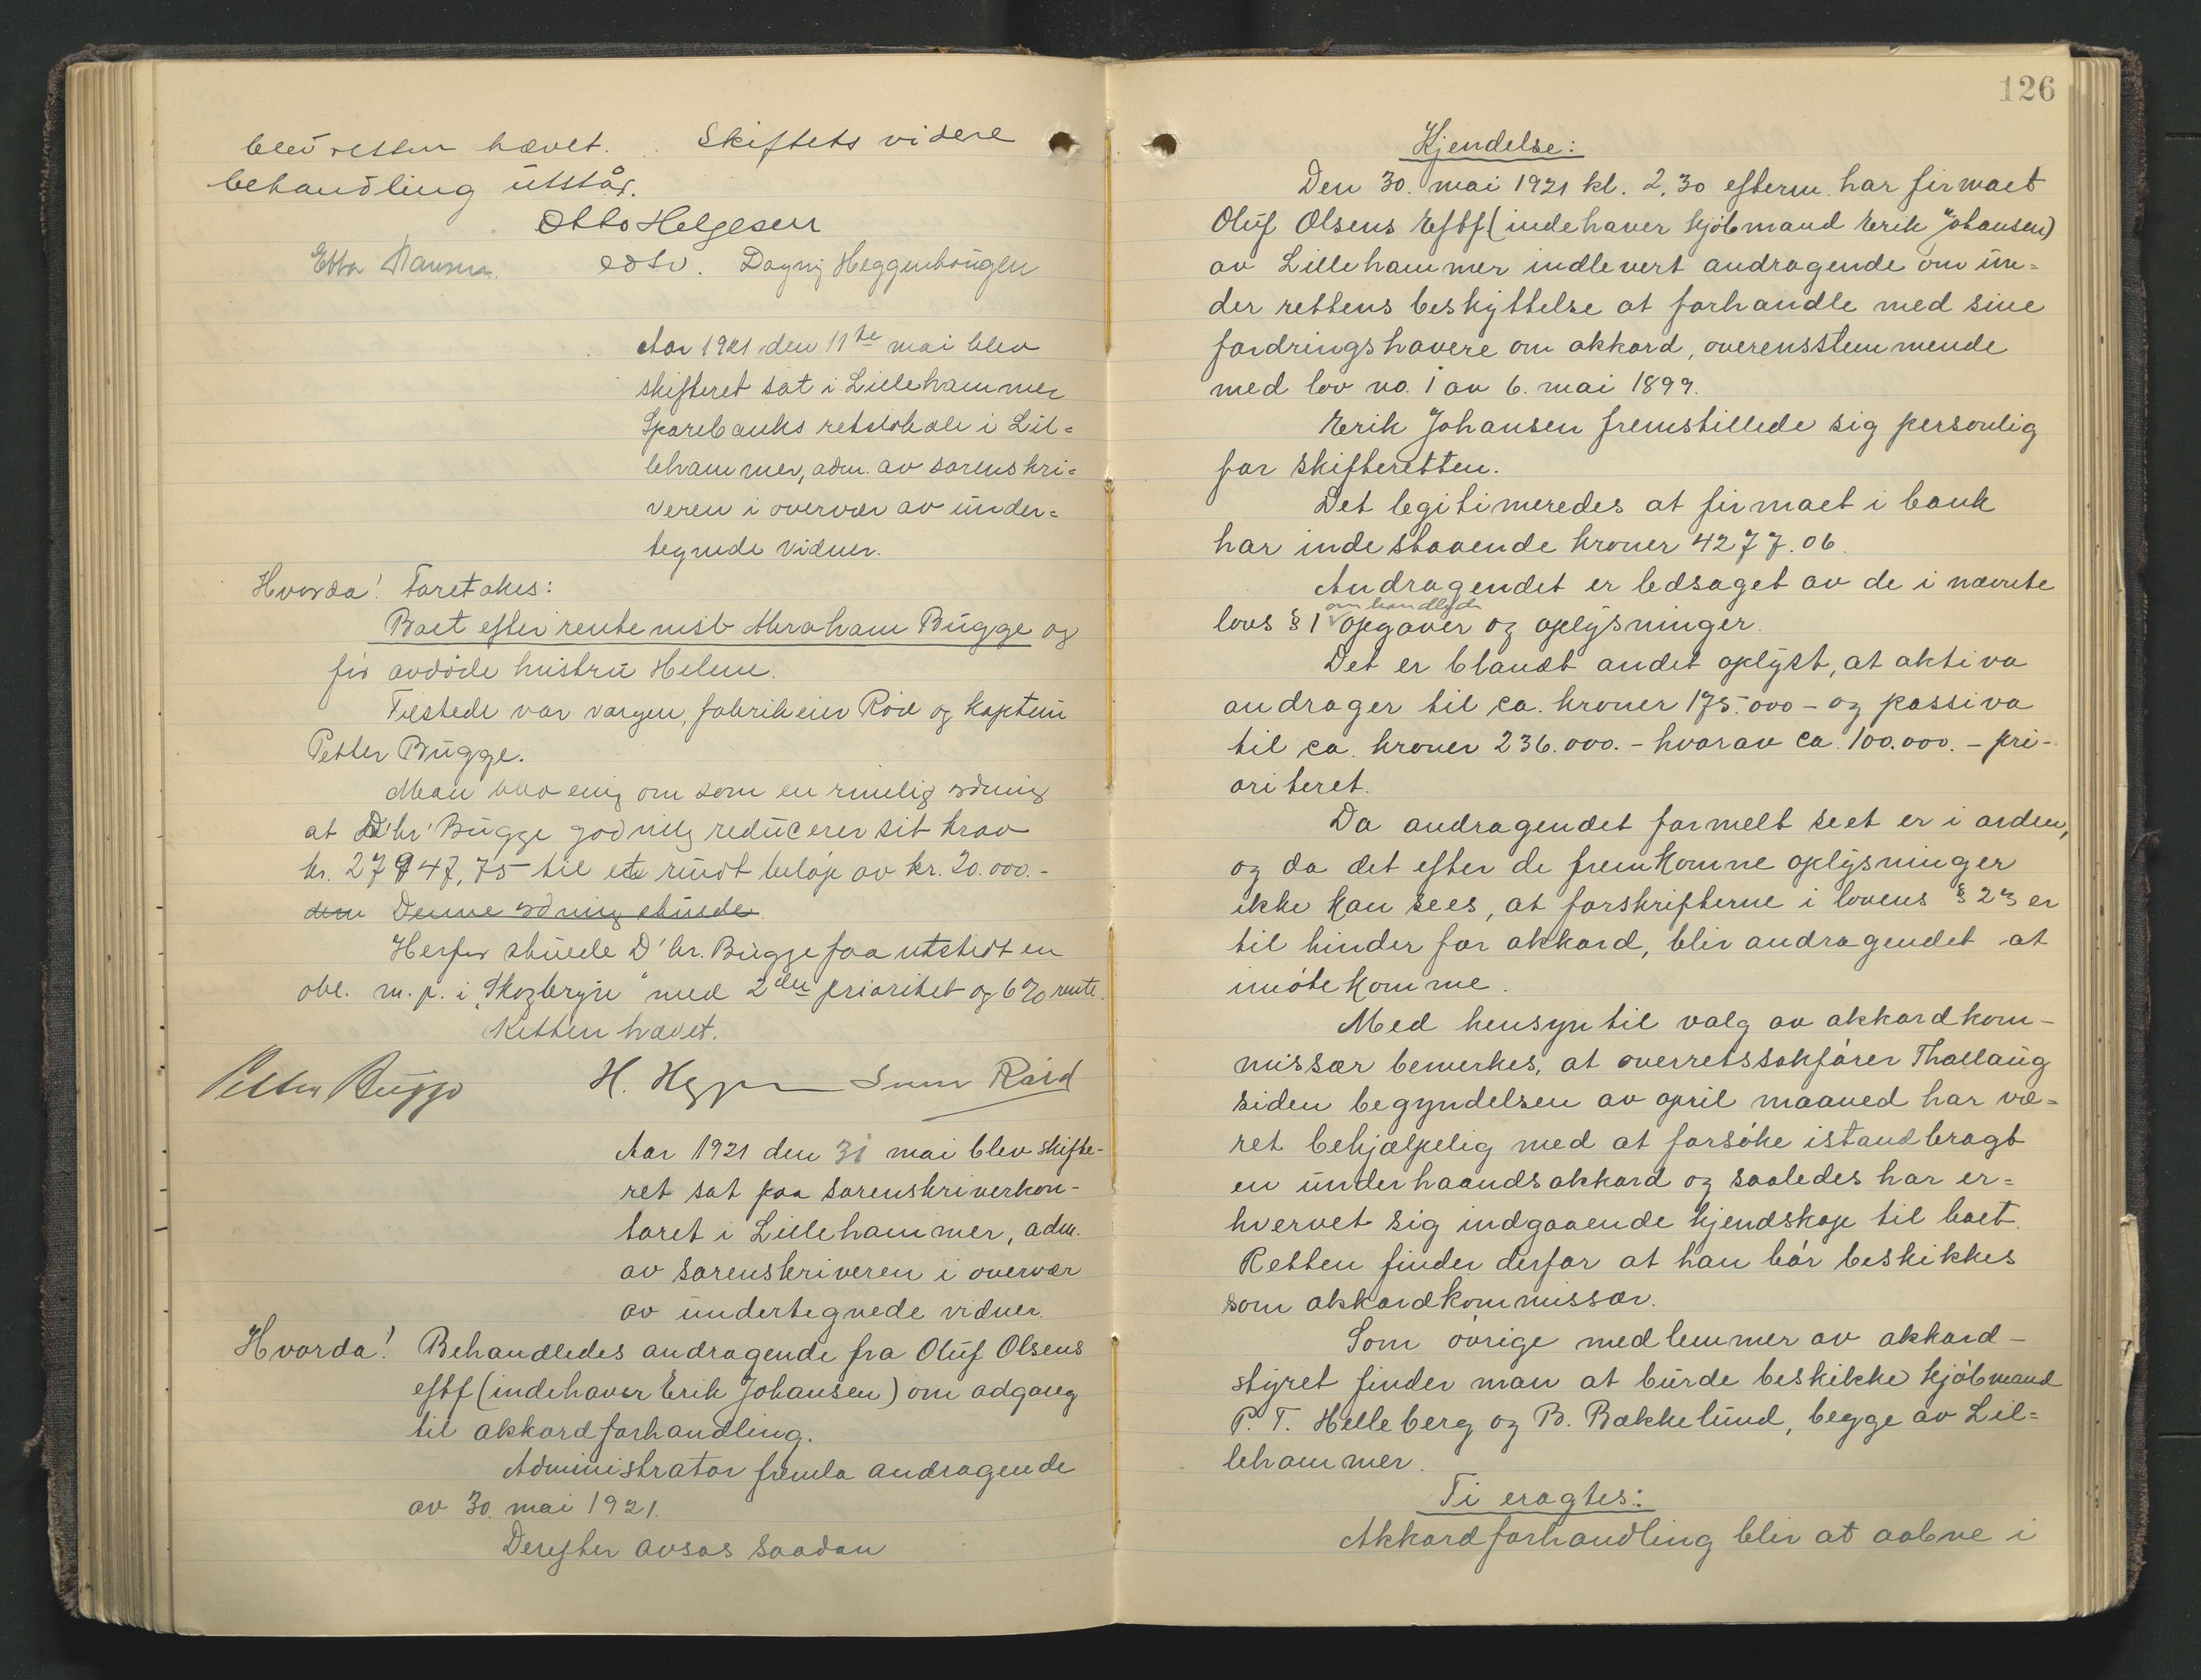 blev retten hævet. Skiftets videre
behandling utstår.
Otto Helgesen
Ebba Hansen. edsv. Dagny Heggenhougen
Aar 1921 den 11te mai blev
skifteret sat i Lillehammer
Sparebanks retslokale i Lil=
lehammer, adm. av sorenskri=
veren i overvær av under=
tegnede vidner.
Hvorda! Foretokes:
Boet efter rentenist Abraham Bugge og
før avdøde hustru Helene.
Tilstede var vergen, fabrikeier Röid og kaptein
Petter Bugge.
Man blev enig om som en rimelig ordning
at D'hr' Bugge godvillig reducerer sit krav
kr. 27947,75 til et rundt beløp av kr. 20.000.-
dem Denne ordning skulde
Herfor skulde D'hr. Bugge faa utstedt en
obl. m. p. i "Skogbryn" med 2den prioritet og 6% rente.
Retten hævet.
Petter Bugge H. Röid
Aar 1921 den 31 mai blev skifte-
ret sat paa sorenskriverkon-
toret i Lillehammer, adm.
av sorenskriveren i overvær
av undertegnede vidner.
Hvorda! Behandledes andragende fra Oluf Olsens
eftf (indehaver Erik Johansen) om adgang
til akkordforhandling.
Administrator fremla andragende
av 30. mai 1921.
Derefter avsas saadan
126
Kjendelse:
Den 30. mai 1921 kl. 2,30 efterm. har firmaet
Oluf Olsens Eftf (indehaver kjöbmand Erik Johansen)
av Lillehammer indlevert andragende om un=
der rettens beskyttelse at forhandle med sine
fordringshavere om akkord, overensstemmende
med lov no. 1 av 6. mai 1899.
Erik Johansen fremstillede sig personlig
for skifteretten.
Det legitimeredes at firmaet i bank
har indestaaende kroner 4277.06.
Andragendet er ledsaget av de i nævnte
omhandlede
lovs § 1 opgaver og oplysninger.
Det er blandt andet oplyst, at aktiva
andrager til ca. kroner 175.000 - og passiva
til ca. kroner 236.000.- hvorav ca. 100.000.- pri-
oriteret.
Da andragendet formelt seet er i orden,
og da det efter de fremkomne oplysninger
ikke kan sees, at forskrifterne i lovens § 23 er
til hinder for akkord, blir andragendet at
imötekomme.
Med hensyn til valg av akkordkom-
missær bemerkes, at overretssakförer Thallaug
siden begyndelsen av april maaned har væ=
ret behjælpelig med at forsöke istandbragt
en underhaandsakkord og saaledes har er=
hvervet sig indgaaende kjendskap til boet.
Retten finder derfor at han bör beskikkes
som akkordkommissær.
Som övrige medlemmer av akkord-
styret finder man at burde beskikke kjöbmand
P. T. Helleberg og B. Bakkelund, begge av Lil=
lehammer.
Ti eragtes:
Akkordforhandling blir at aabne i